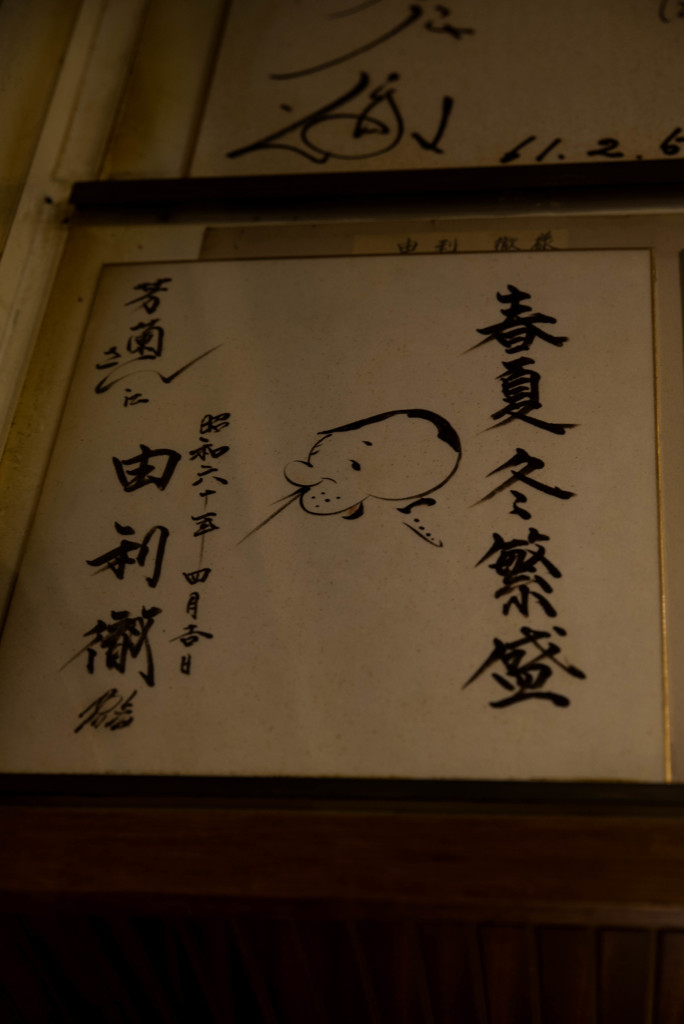 61.2.6
由利 徹様
春夏冬繁盛
昭和六十年四月吉日
芳蘭さん江
由利徹